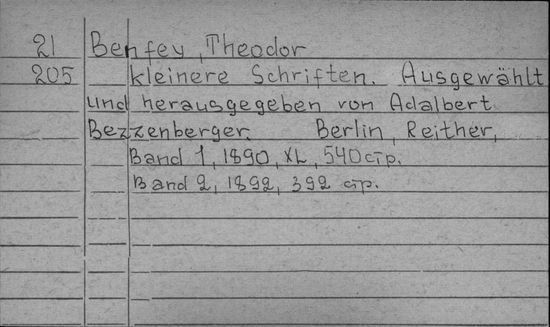 21 Benfey, Theodor
205 kleinere Schriften. Ausgewählt
und herausgegeben von Adalbert
Bezzenberger. Berlin, Reither,
Band 1, 1890, XL, 540 стр.
Band 2, 1892, 392 стр.